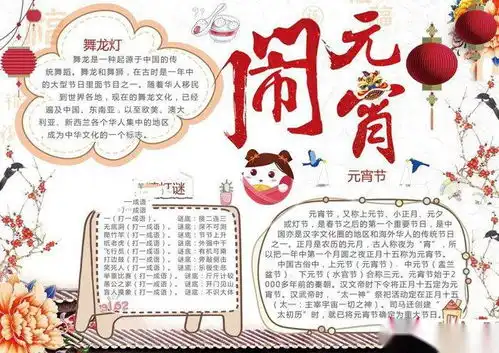 闹元宵
元宵节
舞龙灯
舞龙是一种起源于中国的传
统舞蹈。舞龙和舞狮，在古时是一年中
的大型节日里面节目之一。随着华人移民
到世界各地，现在的舞龙文化，已经
遍及中国、东南亚，以至欧美、澳大
利亚、新西兰各个华人集中的地区，
成为中华文化的一个标志。
灯谜
打一成语）
（打一成语） 谜底：接二连三
一（打一成语）。 谜底：深不可测
无底洞（打一成语）。 谜底：节节上升
爬竹竿（打一成语）。 谜底：外强中干
纸老虎（打一成语）。 谜底：有机可乘
飞行员（打一成语）。 谜底：旁敲侧击
打边鼓（打一成语）。
笑死人（打一成语）。
举重比赛（打一成语）。 谜底：斤斤计较
愚公之家（打一成语）。 谜底：开门见山
盲人摸象（打一成语）。 谜底：不识大体
元宵节，又称上元节、小正月、元夕
或灯节，是春节之后的第一个重要节日，是中
国亦是汉字文化圈的地区和海外华人的传统节日
之一。正月是农历的元月，古人称夜为“宵”，所
以把一年中第一个月圆之夜正月十五称为元宵节。
中国古俗中，上元节（元宵节） 中元节（盂兰
盆节） 下元节（水官节）合称三元。元宵节始于2
000多年前的秦朝。汉文帝时下令将正月十五定为元
宵节。汉武帝时，“太一神”祭祀活动定在正月十五
（太一：主宰宇宙一切之神）。司马迁创建“
太初历”时，就已将元宵节确定为重大节日。